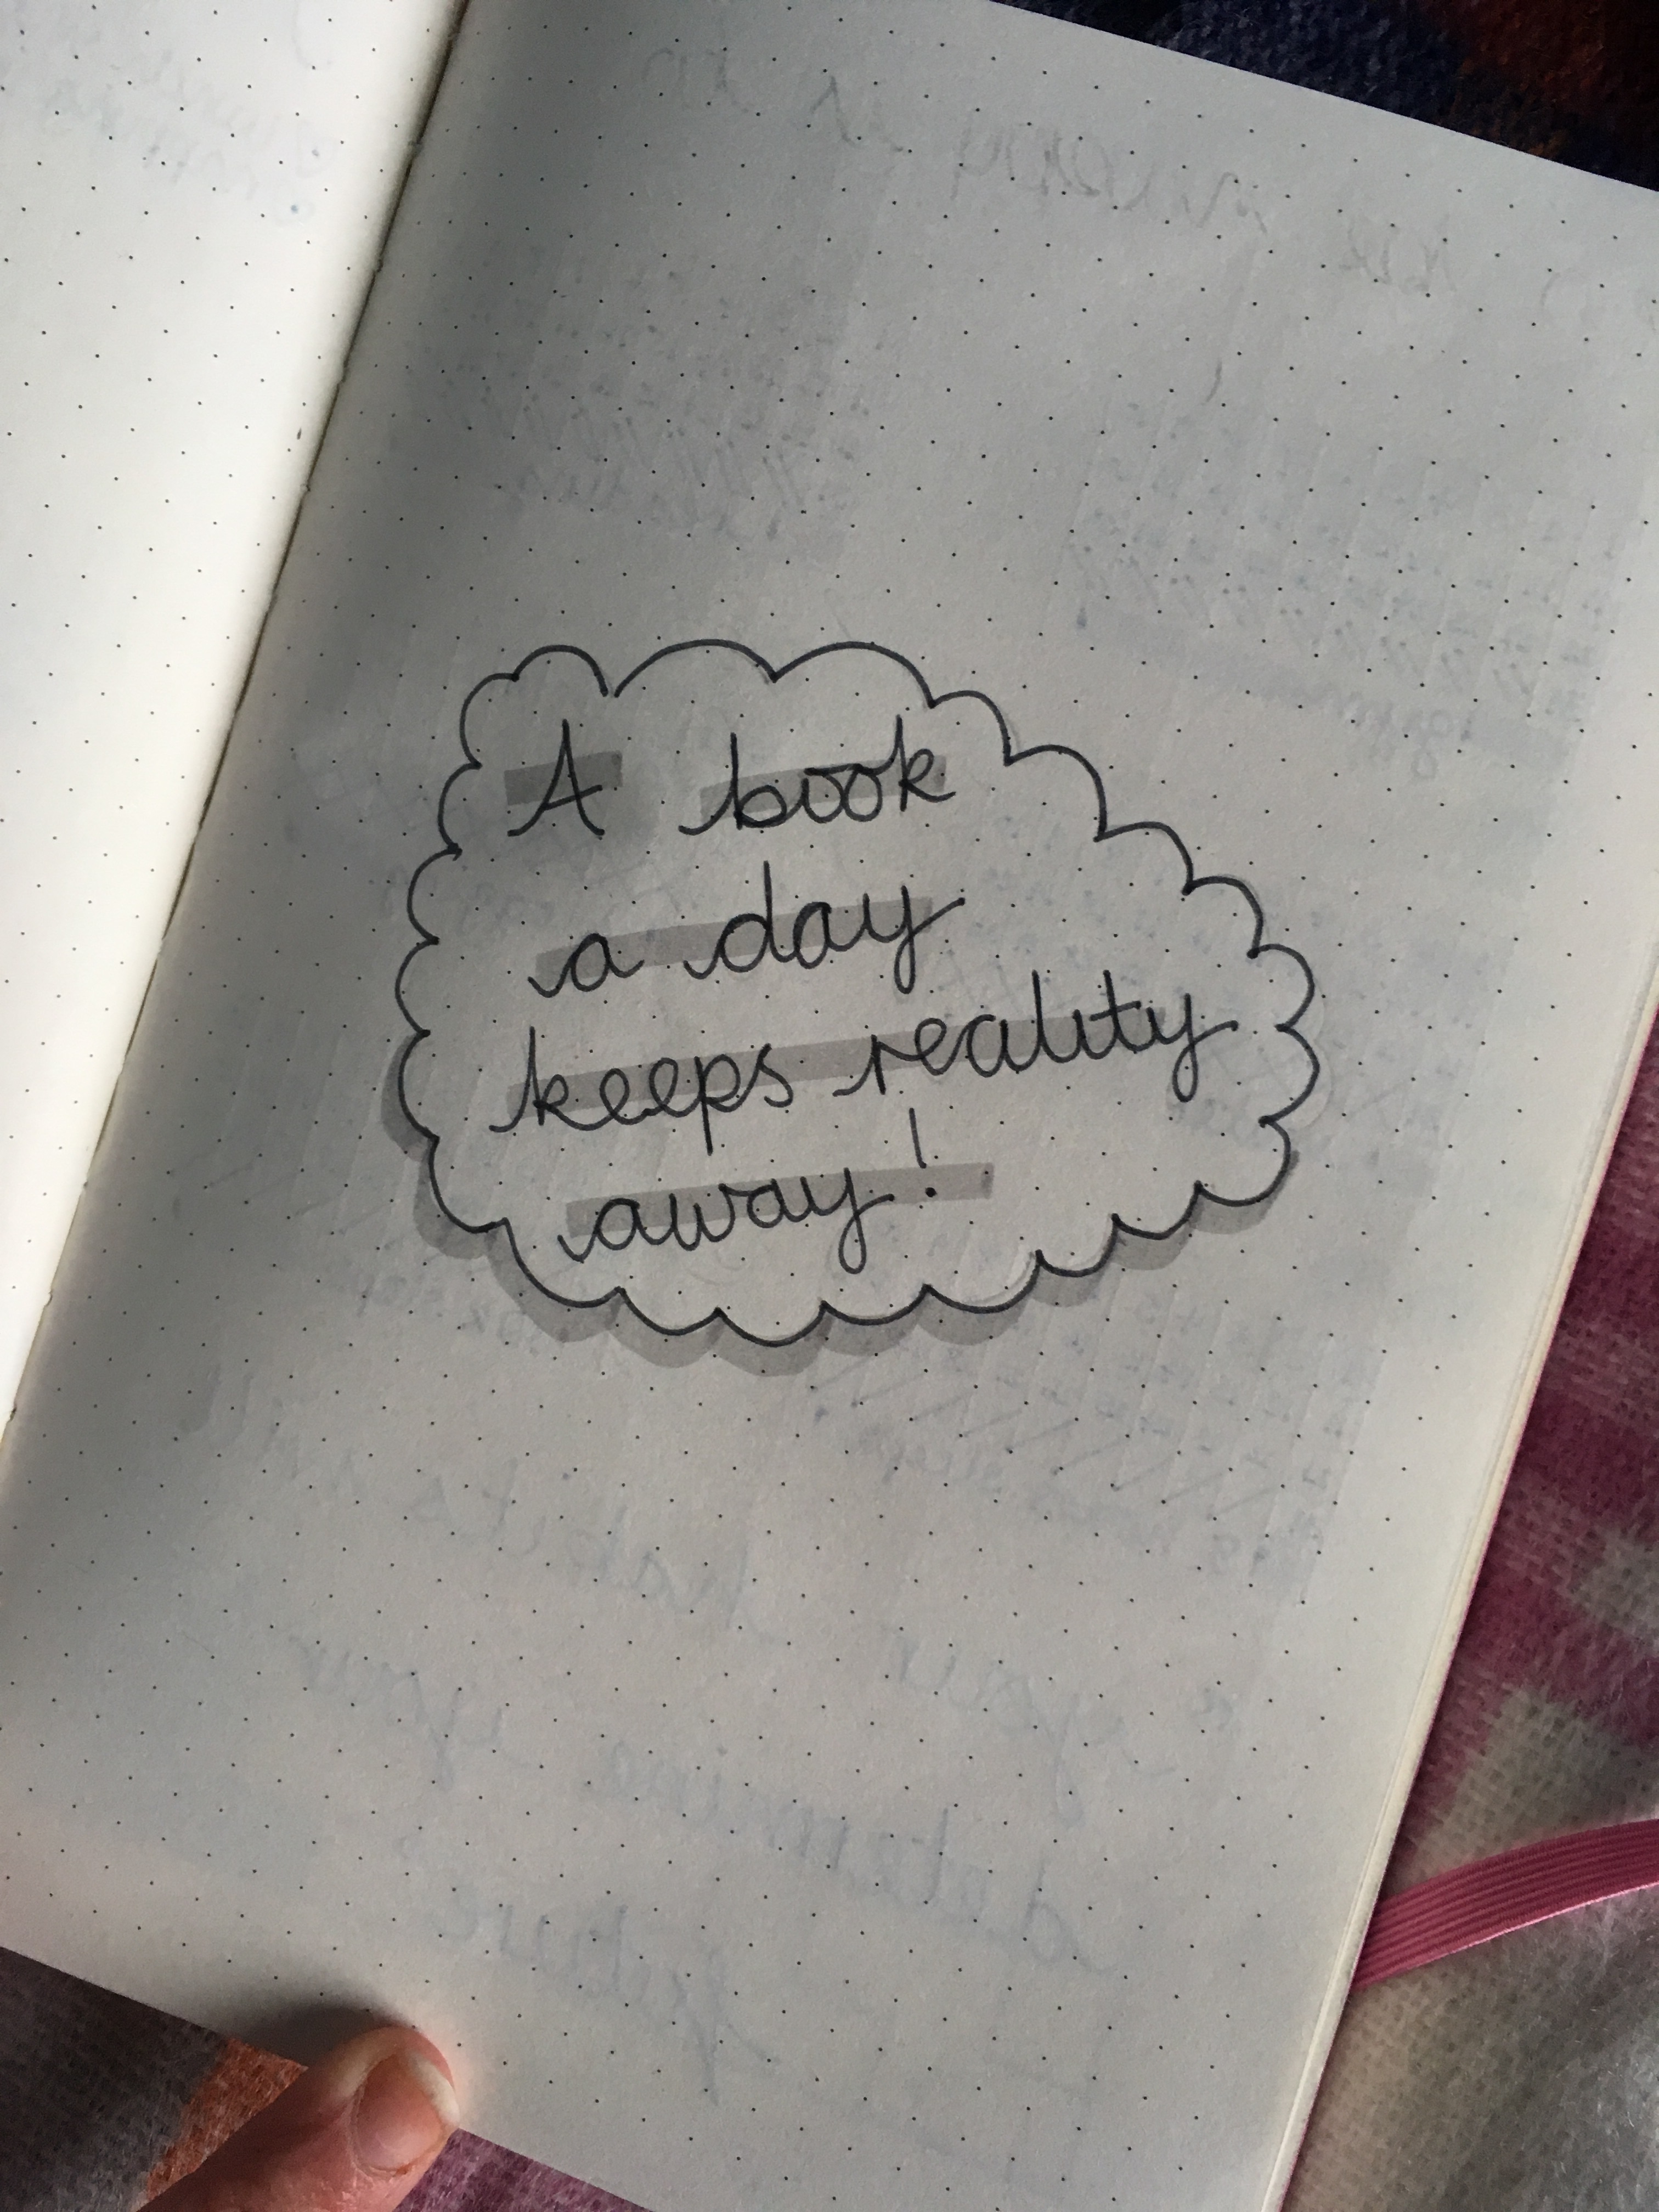 A book
a day
keeps reality
away!